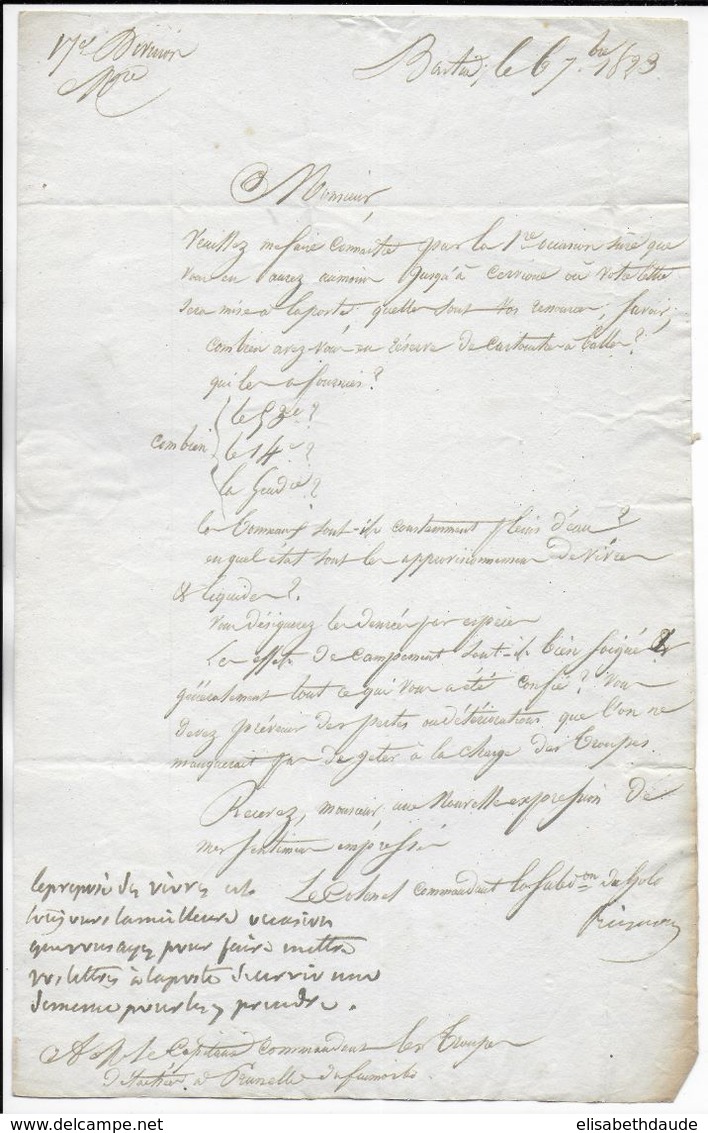 17e Division
Mre
Bastia, le 6 7.bre 1823
Monsieur,
Veuillez me faire connaitre par la 1re occasion sure que
vous en aurez aumoins jusqu'à Cervione où votre lettre
sera mise a la poste, quelles sont vos ressources; savoir;
combien avez-vous en réserve de cartouches à balles?
qui les a fournies?
combien
le 53e?
le 14e?
la Gendie?
les tonneaux sont-ils constamment pleins d'eau?
en quel état sont les approvisionnemens de vivres
& liquides?
Vous désignerez les denrées par espèces
Les effets de campement sont-ils bien soignés &
généralement tout ce qui vous a été confié? Vous
devez prévenir des pertes ou détériorations que l'on ne
manquerait pas de geter à la charge des troupes.
Recevez, monsieur, une nouvelle expression de
mes sentimens empressés
Le Colonel commandant la Subdon du Golo
le preposé des vivres est
toujours la meilleure occasion
que vous ayez pour faire mettre
vos lettres à la poste de cervione
de meme pour les y prendre.
A M. le Capitaine commandant les troupes
détachées à Prunelli di fiumorbo.
elisabethdaude